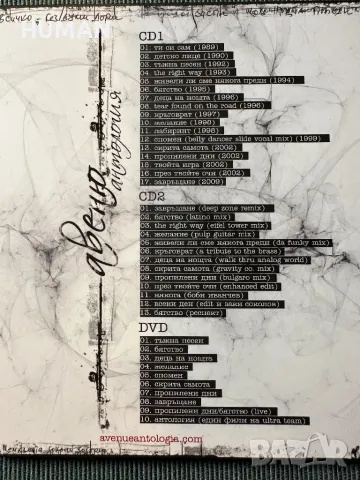 HUMAN
авеню
антология
CD1
01: ти си сам (1989)
02. детско лице (1990)
03. тъжна песен (1992)
04. the right way (1993)
05. живели ли сме някога преди (1994)
06. бягство (1995)
07. деца на нощта (1996)
08. tear found on the road (1996)
09. кръговрат (1997)
10. желание (1998)
11. лабиринт (1998)
12. спомен (belly dancer slide vocal mix) (1999)
13. скрита самота (2002)
14. пропилени дни (2002)
15. твойта игра (2002)
16. през твойте очи (2002)
17. завръщане (2009)
CD2
01. завръщане (deep zone remix)
02. бягство (latino mix)
03. the right way (eifel tower mix)
04. желание (pulp guitar mix)
05. живели ли сме някога преди (da funky mix)
06. кръговрат (a tribute to the brass)
07. деца на нощта (walk thru analog world)
08. скрита самота (gravity co. mix)
09. пропилени дни (bulgaro mix)
10. през твойте очи (enhanced edit)
11. някога (боби иванчев)
12. всеки ден (edit и ваня соколов)
13. бягство (респект)
DVD
01. тъжна песен
02. бягство
03. деца на нощта
04. желание
05. спомен
06. скрита самота
07. пропилени дни
08. завръщане
09. пропилени дни/бягство (live)
10. антология (един филм на ultra team)
avenueantologia.com
bazar